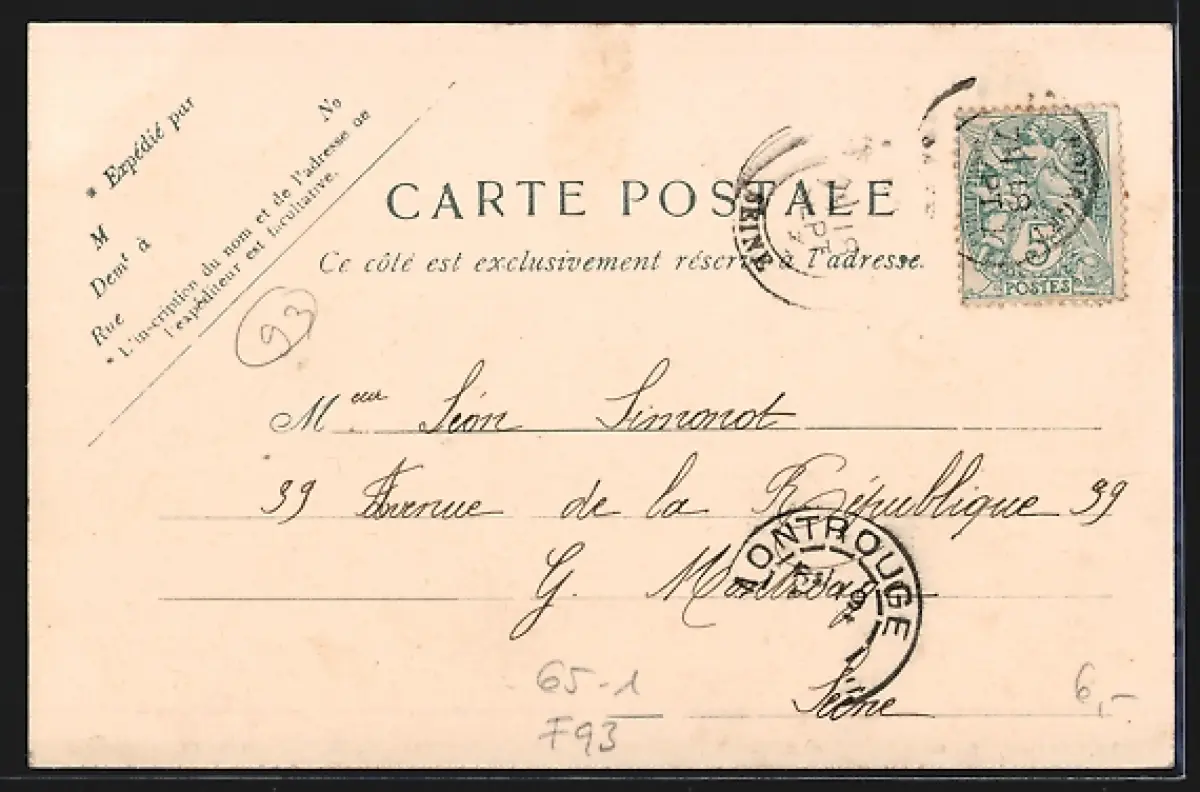 * Expédié par
M
Demt à
Rue
No
* L'inscription du nom et de l'adresse de
l'expéditeur est facultative.
CARTE POSTALE
Ce côté est exclusivement réservé à l'adresse.
SEINE
5
POSTES
93
Meeur Léon Simonot
39 Avenue de la République 39
G. Montrouge
MONTROUGE
Seine
65-1
F93
6,-